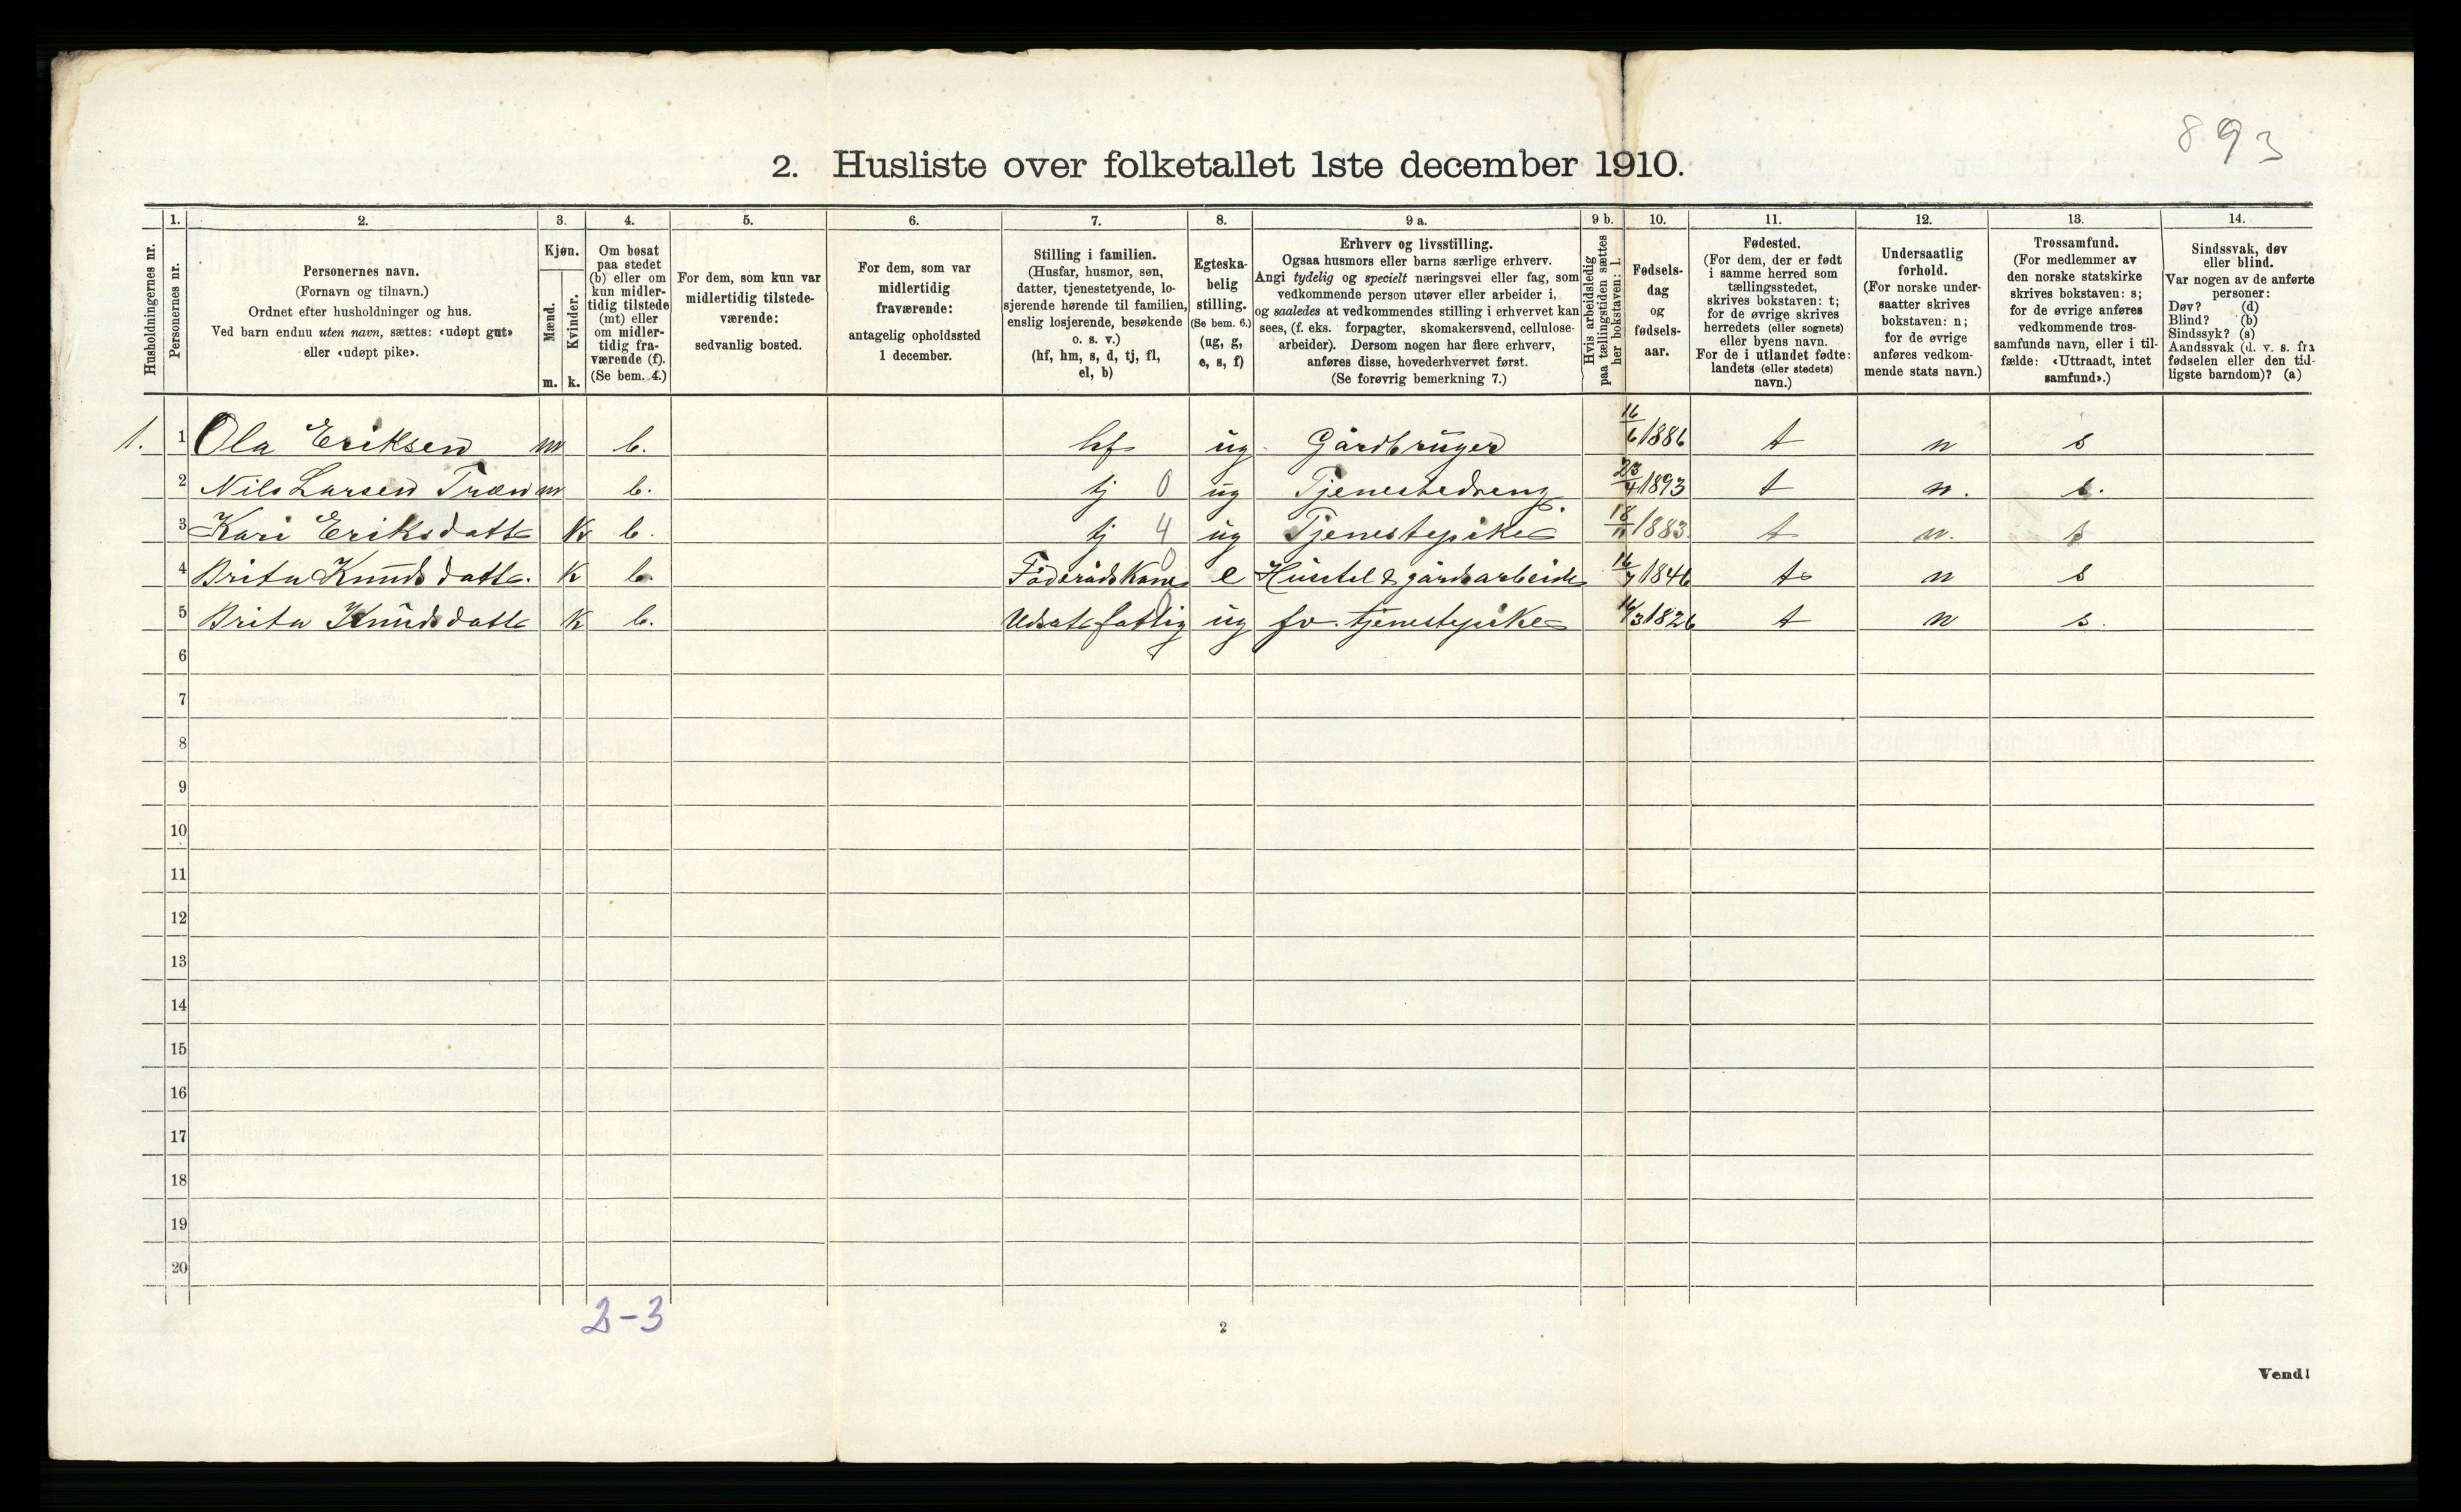 893
2. Husliste over folketallet 1ste december 1910.
Husholdningernes nr.
1.
Personernes nr.
2.
Personernes navn.
(Fornavn og tilnavn.)
Ordnet efter husholdninger og hus.
Ved barn endnu uten navn, sættes: «udøpt gut»
eller «udøpt pike».
3.
Kjøn.
Mænd.
m.
Kvinder.
k.
4.
Om bosat
paa stedet
(b) eller om
kun midler-
tidig tilstede
(mt) eller
om midler-
tidig fra-
værende (f).
(Se bem. 4.)
5.
For dem, som kun var
midlertidig tilstede-
værende:
sedvanlig bosted.
6.
For dem, som var
midlertidig
fraværende:
antagelig opholdssted
1 december.
7.
Stilling i familien.
(Husfar, husmor, søn,
datter, tjenestetyende, lo-
sjerende hørende til familien,
enslig losjerende, besøkende
o. s. v.)
(hf, hm, s, d, tj, fl,
el, b)
8.
Egteska-
belig
stilling.
(Se bem. 6.)
(ug, g,
e, s, f)
9 a.
Erhverv og livsstilling.
Ogsaa husmors eller barns særlige erhverv.
Angi tydelig og specielt næringsvei eller fag, som
vedkommende person utøver eller arbeider i,
og saaledes at vedkommendes stilling i erhvervet kan
sees, (f. eks. forpagter, skomakersvend, cellulose-
arbeider). Dersom nogen har flere erhverv,
anføres disse, hovederhvervet først.
(Se forøvrig bemerkning 7.)
9 b.
Hvis arbeidsledig
paa tællingstiden sættes
her bokstaven: l.
10.
Fødsels-
dag
og
fødsels-
aar.
11.
Fødested.
(For dem, der er født
i samme herred som
tællingsstedet,
skrives bokstaven: t;
for de øvrige skrives
herredets (eller sognets)
eller byens navn.
For de i utlandet fødte:
landets (eller stedets)
navn.)
12.
Undersaatlig
forhold.
(For norske under-
saatter skrives
bokstaven: n;
for de øvrige
anføres vedkom-
mende stats navn.)
13.
Trossamfund.
(For medlemmer av
den norske statskirke
skrives bokstaven: s;
for de øvrige anføres
vedkommende tros-
samfunds navn, eller i til-
fælde: «Uttraadt, intet
samfund».)
14.
Sindssvak, døv
eller blind.
Var nogen av de anførte
personer:
Døv? (d)
Blind? (b)
Sindssyk? (s)
Aandssvak (d. v. s. fra
fødselen eller den tid-
ligste barndom)? (a)
1. 1 Ola Eriksen m b. hf ug Gårdbruger 16/6 1886 t n s
2 Nils Larsen Træn m b. tj 0 ug Tjenestedreng 23/4 1893 t n. s.
3 Kari Eriksdatt K b. tj 4 ug Tjenestepike 18/11 1883 t n. s
4 Brita Knudsdatt. K b Føderådskone 0 e Husstel & gårdsarbeide 16/7 1846 t n s
5 Brita Knudsdatt K b. Udsat fattig 0 ug fv. tjenestepike 14/3 1826 t n s.
6
7
8
9
10
11
12
13
14
15
16
17
18
19
20
2-3
2
Vend!